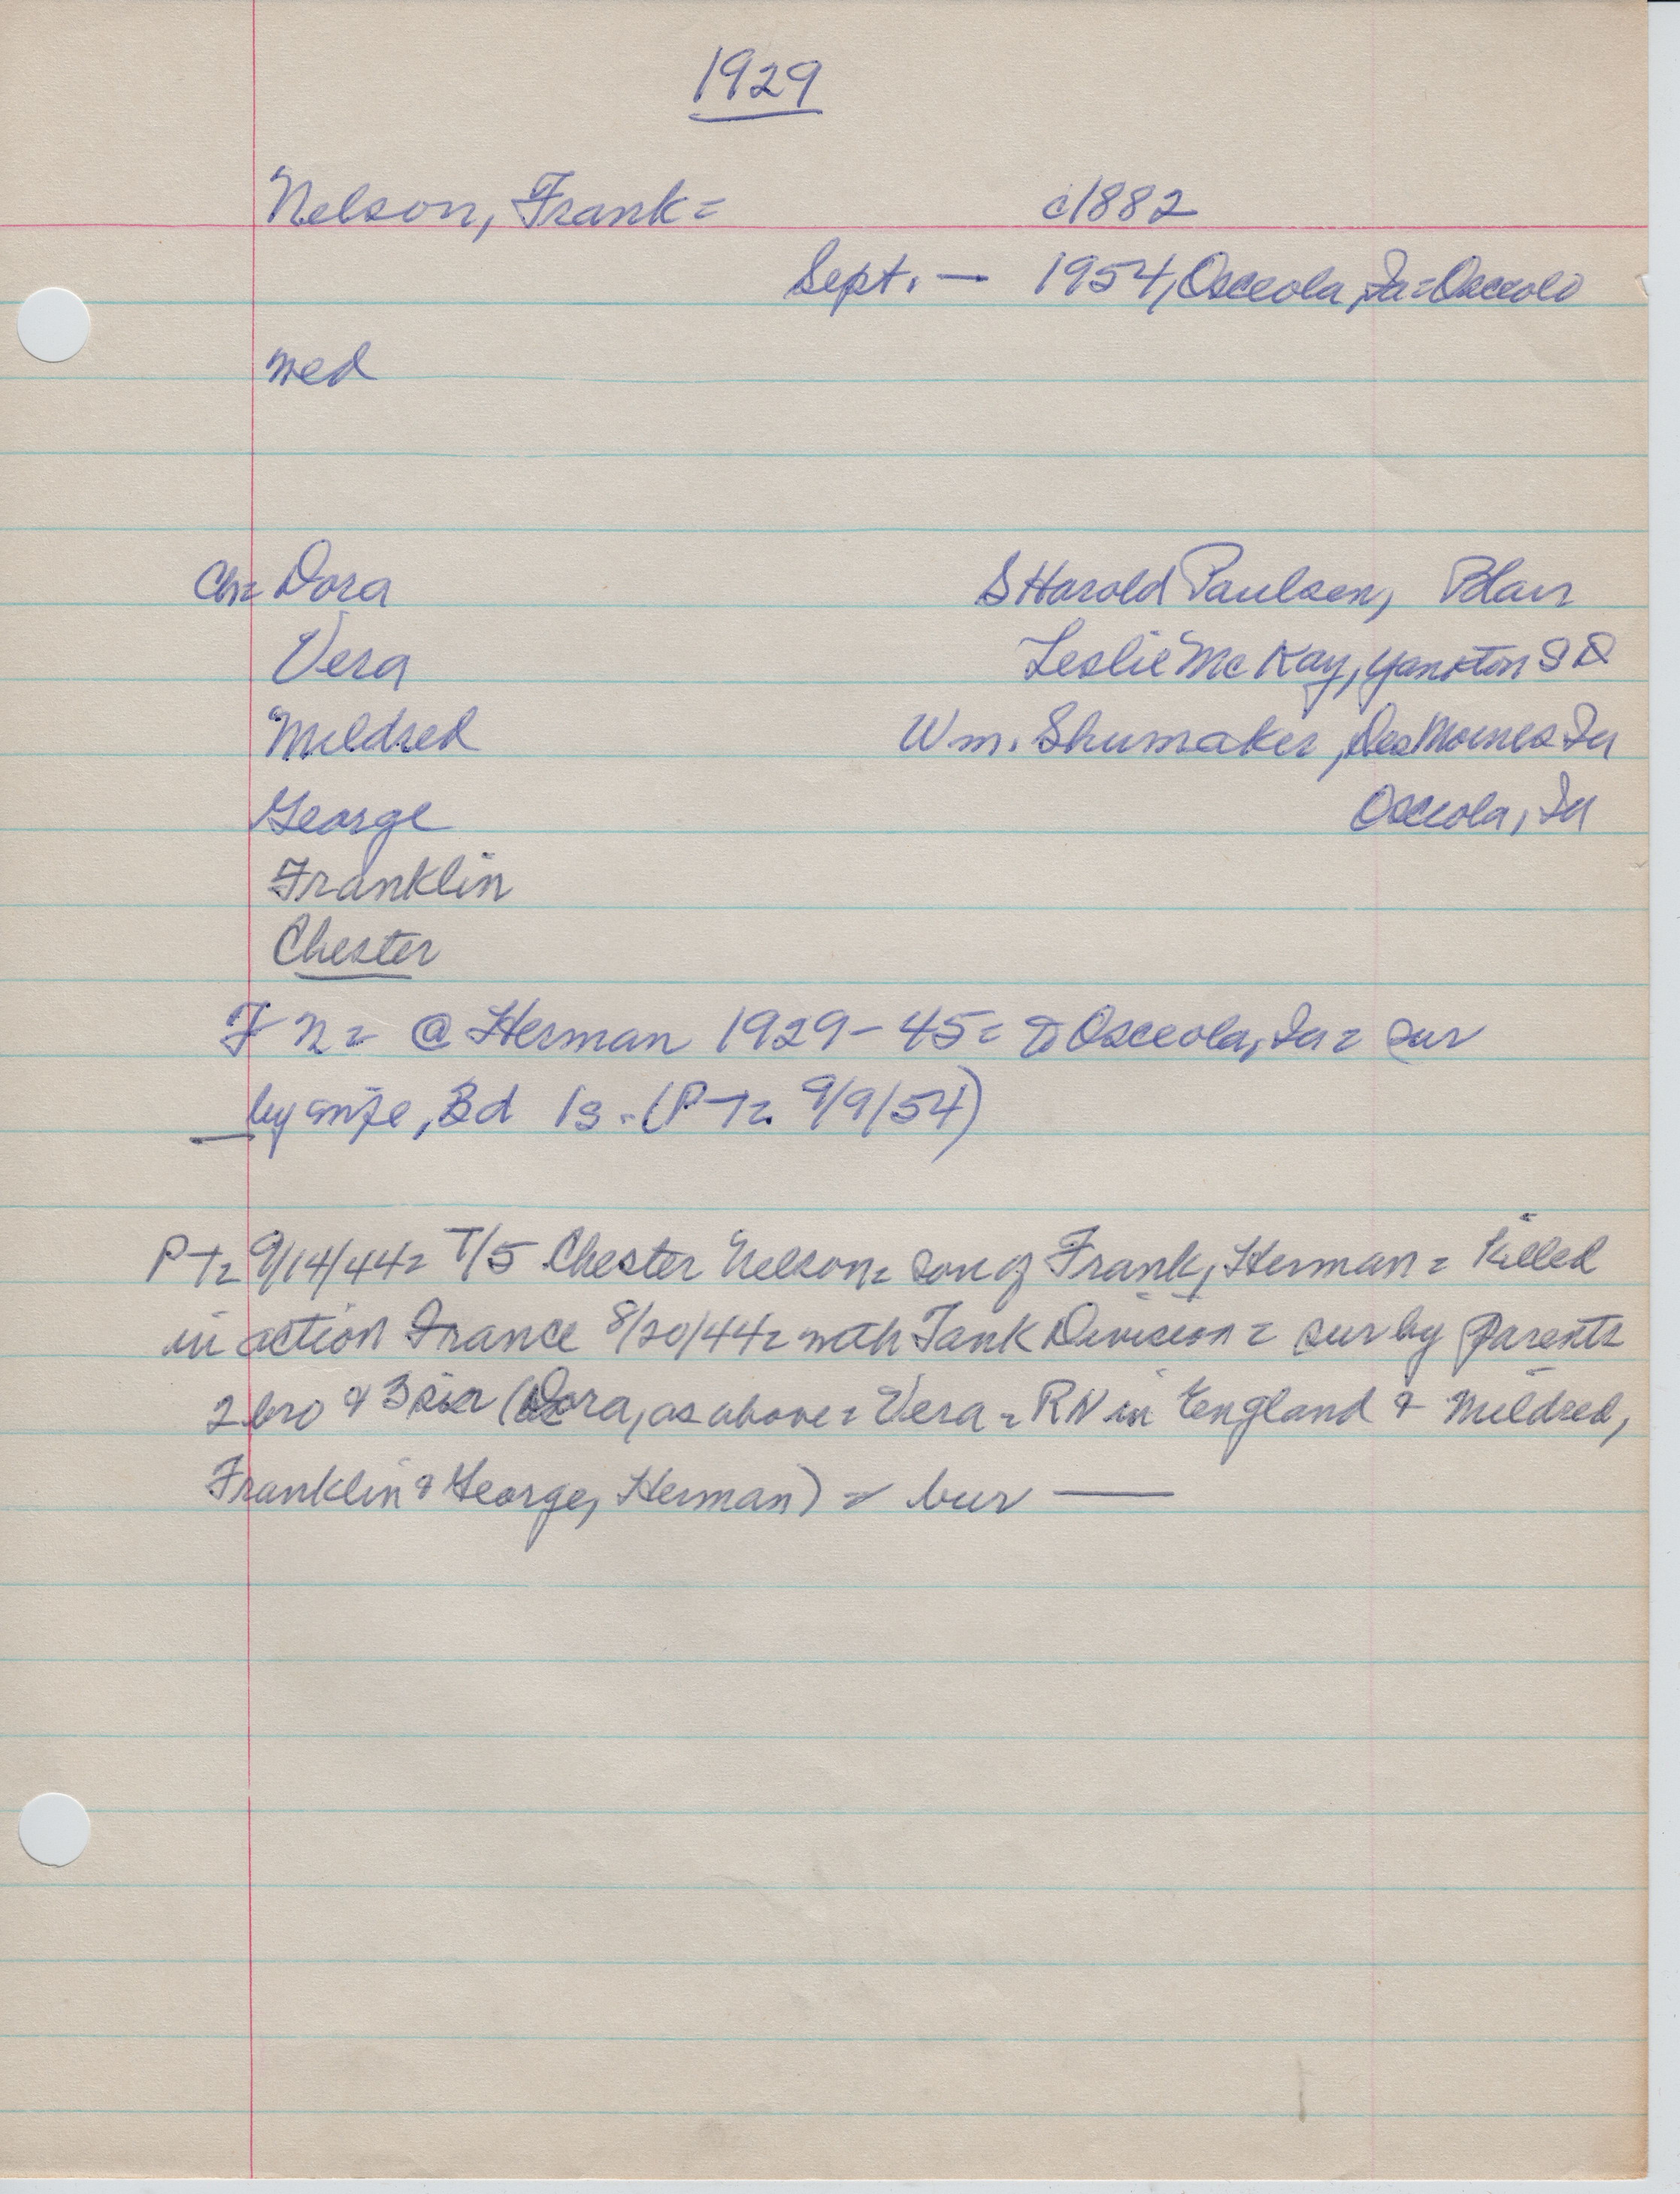 1929
Nelson, Frank = c1882
Sept. — 1954, Osceola, Ia = Osceola
wed
Ch = Dora S Harold Paulsen, Blair
Vera Leslie McKay, Yankton S D
Mildred Wm. Shumaker, Des Moines Ia
George Osceola, Ia
Franklin
Chester
F N = @ Herman 1929-45 = to Osceola, Ia = sur
by wife, 3d 1s. (PT = 9/9/54)
PT = 9/14/44 = T/5 Chester Nelson = son of Frank, Herman = killed
in action France 8/20/44 = with Tank Division = sur by parents
2 bro & 3 sis (Dora, as above = Vera = RN in England & Mildred,
Franklin & George, Herman) = bur —